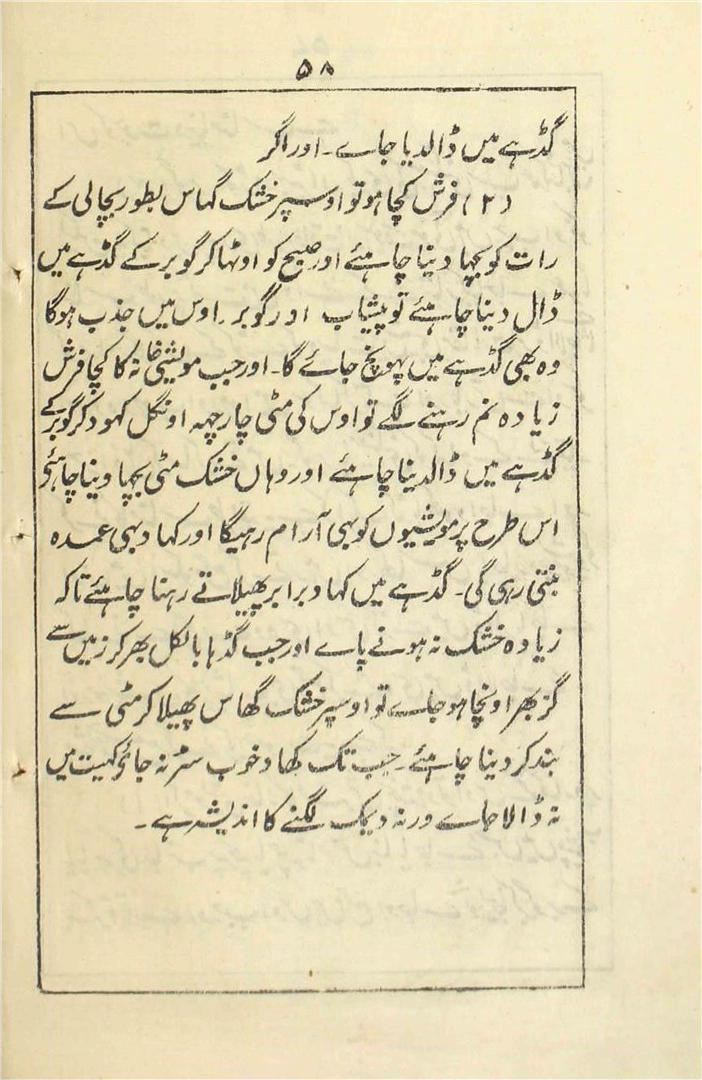 ۵۸
گڈہے میں ڈالدیا جاے۔ اور اگر
(۲) فرش کچا ہو تو اوسپر خشک گہاس بطور بچالی کے
رات کو بچہا دینا چاہئے اور صبح کو اوٹہا کر گوبر کے گڈہے میں
ڈال دینا چاہئے تو پیشاب اور گوبر۔ اوس میں جذب ہوگا
وہ بھی گڈہے میں پہونچ جاۓ گا۔ اور جب مویشی خانہ کا کچا فرش
زیادہ نم رہنے لگے تو اوس کی مٹی چار چہہ اونگل کہود کر گوبر کے
گڈہے میں ڈالدینا چاہئے اور وہاں خشک مٹی بچہا دینا چاہئو
اس طرح پر مویشیوں کو بہی آرام رہیگا اور کہاد بہی عمدہ
بنتی رہی گی۔ گڈہے میں کہاد برابر پھیلاتے رہنا چاہئے تاکہ
زیادہ خشک نہ ہونے پاے اور جب گڈہا بالکل بھر کر زمیں سے
گز بھر اونچا ہو جاے تو اوسپر خشک گھاس پھیلا کر مٹی سے
بند کر دینا چاہئے۔ جب تک کھاد خوب سڑ نہ جائے کہیت میں
نہ ڈالا جاے ورنہ دیمک لگنے کا اندیشہ ہے۔